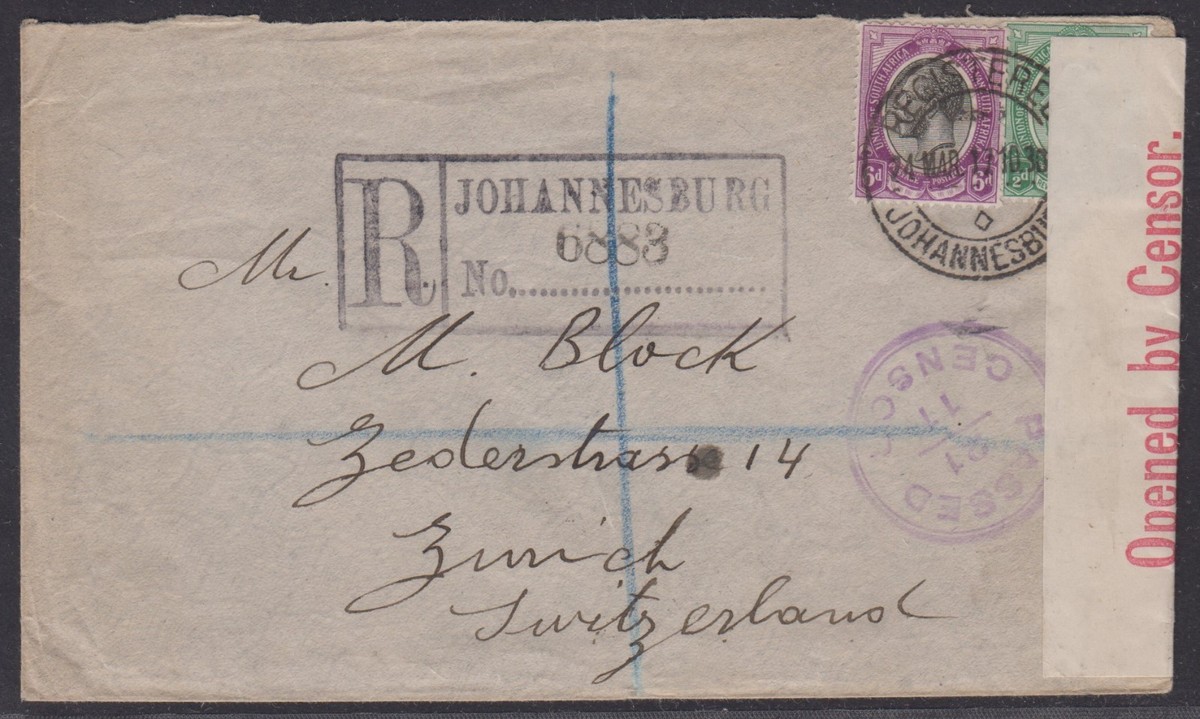 UNION OF SOUTH AFRICA
6d 6d
½d
REGISTERED
MAR
JOHANNESBU
R JOHANNESBURG
6883
No.
Mr.
M. Block
Zederstrasse 14
Zurich
Switzerland
PASSED CENSOR
Opened by Censor.